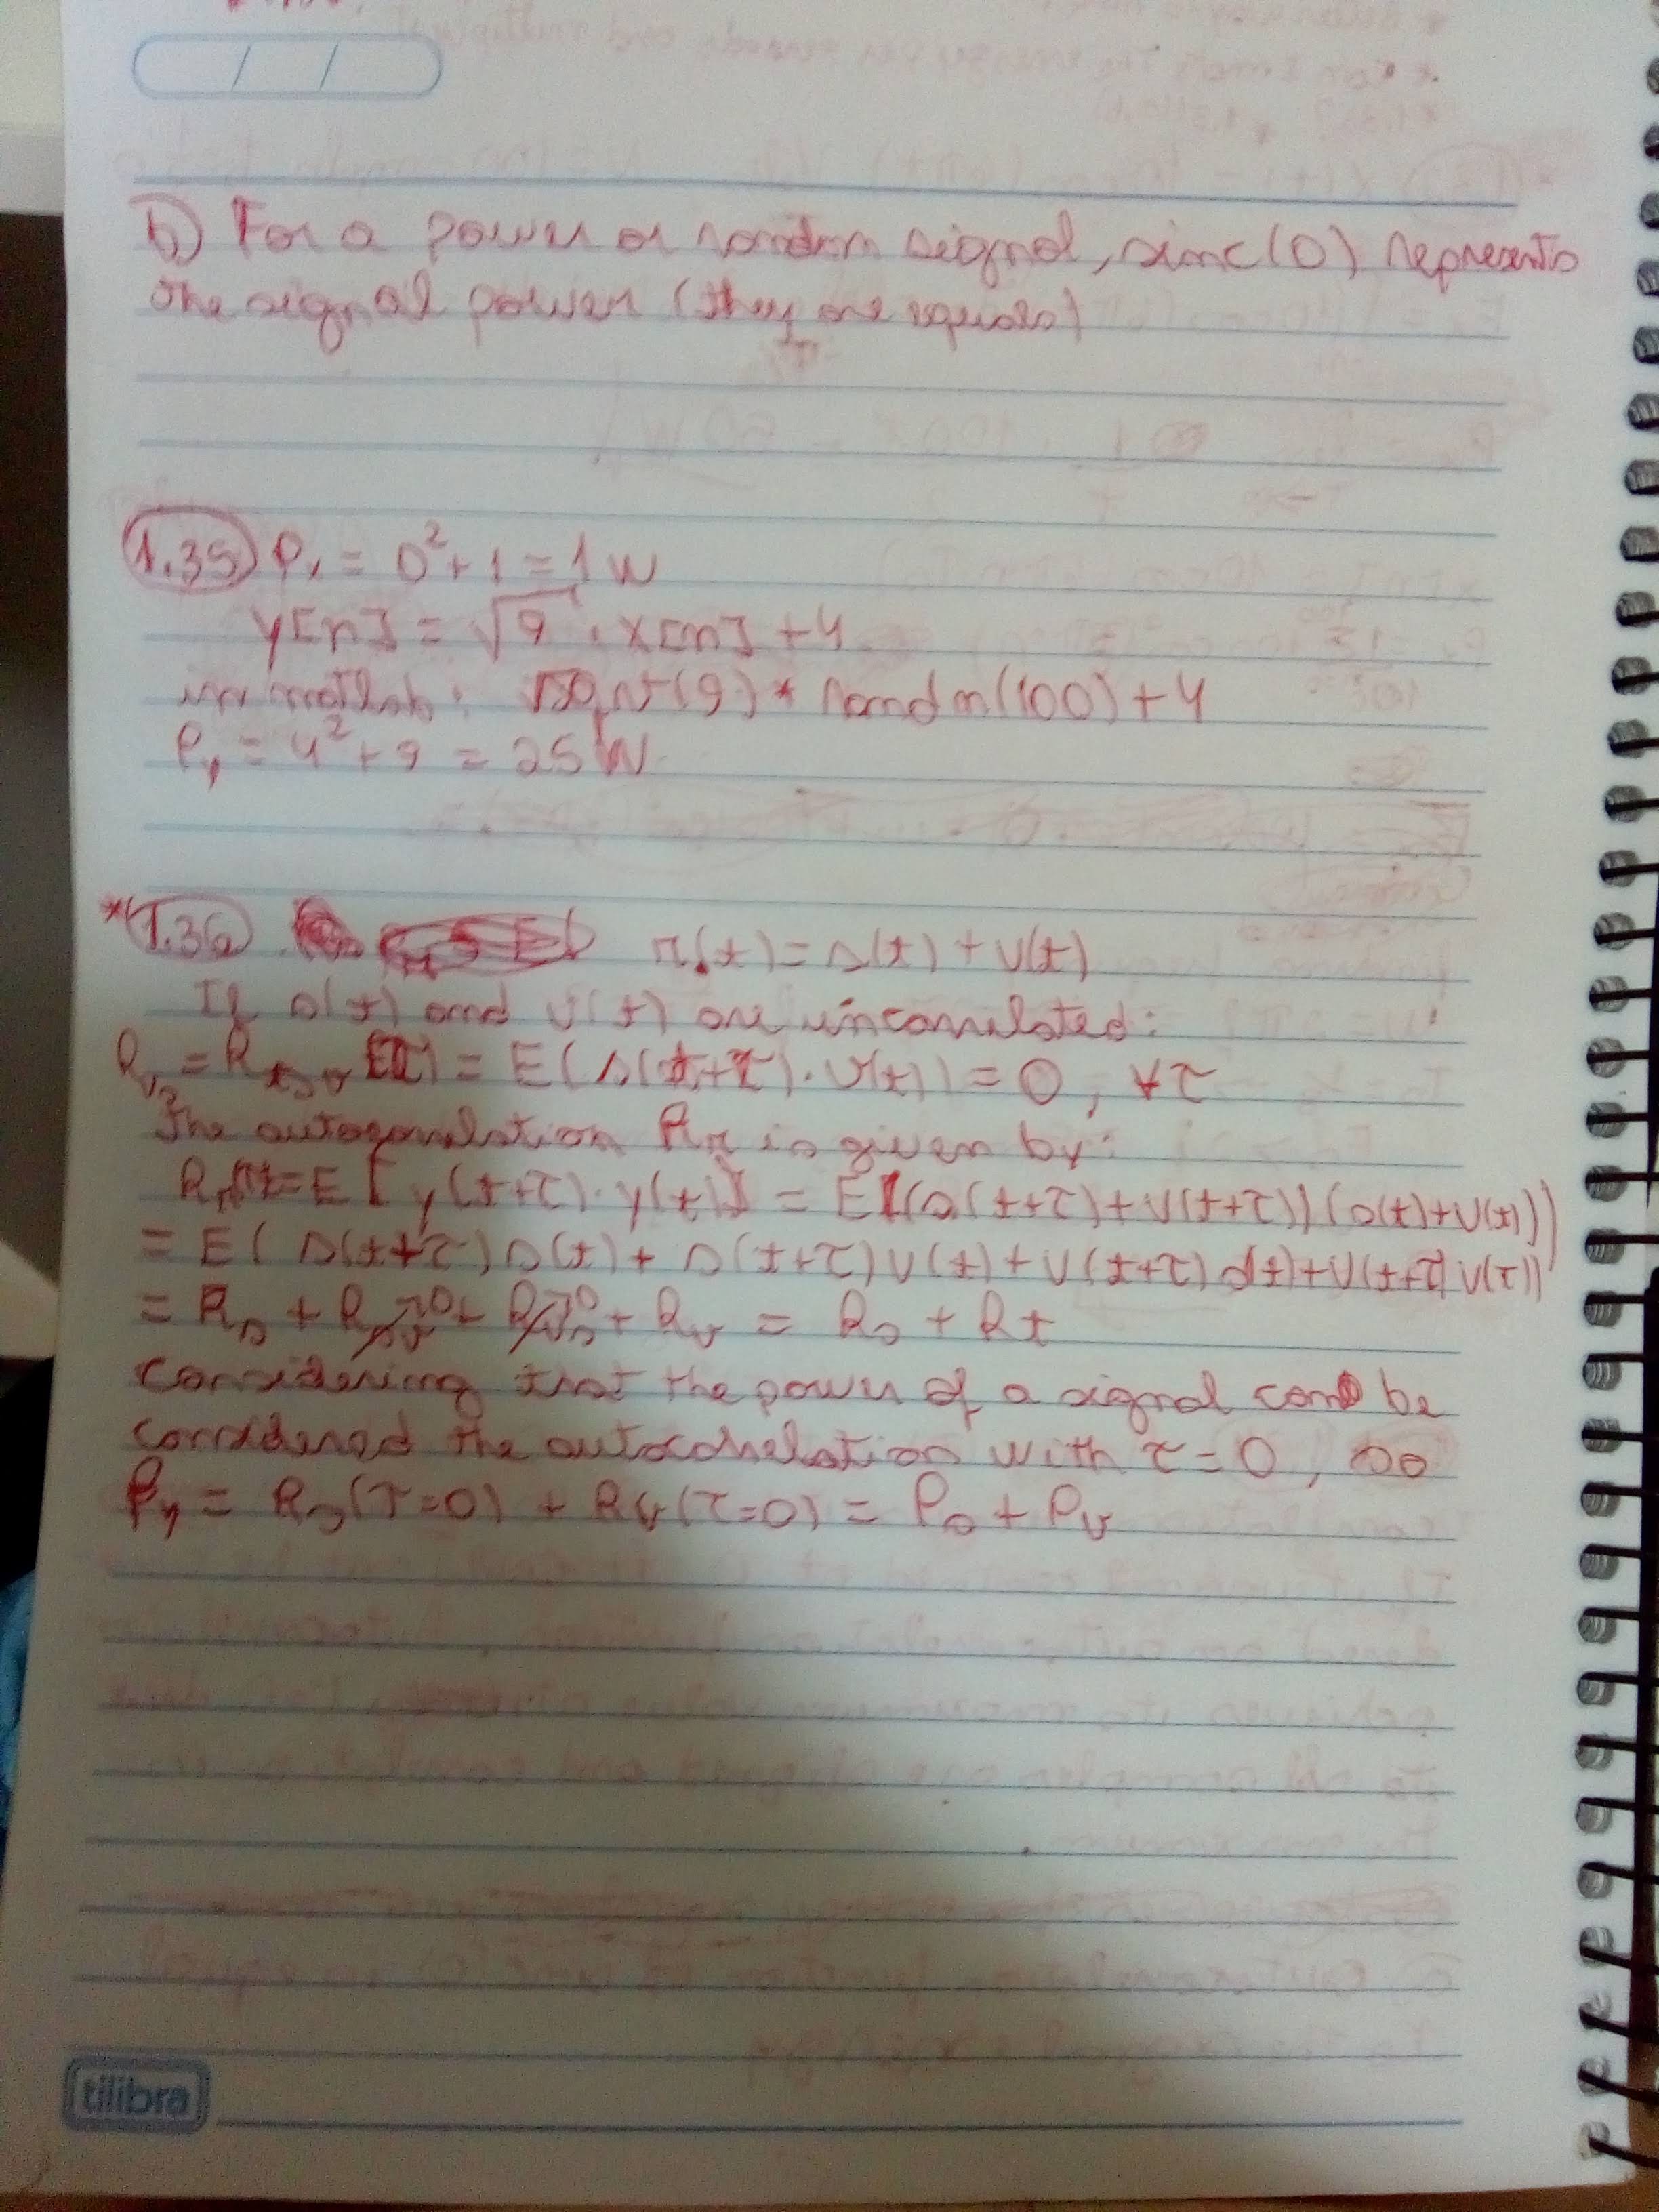 b) For a power or random signal, sinc(0) represents
the signal power (they are equals)
1.35) Px = 0² + 1 = 1 W
y[n] = √9 · x[n] + 4
in matlab: sqrt(9) * randn(100) + 4
Py = 4² + 9 = 25 W
*1.36) r(t) = s(t) + v(t)
If s(t) and v(t) are uncorrelated:
Rvs = Rsv(τ) = E(s(t+τ) · v(t)) = 0, ∀τ
The autocorrelation Rr is given by:
Rr = E[y(t+τ) · y(t)] = E((s(t+τ) + v(t+τ))(s(t)+v(t)))
= E(s(t+τ)s(t) + s(t+τ)v(t) + v(t+τ)s(t) + v(t+τ)v(τ))
= Rs + Rsv→0 + Rvs→0 + Rv = Rs + Rt
Considering that the power of a signal can be
considered the autocorrelation with τ=0, so
Py = Rs(τ=0) + Rv(τ=0) = Ps + Pv
tilibra